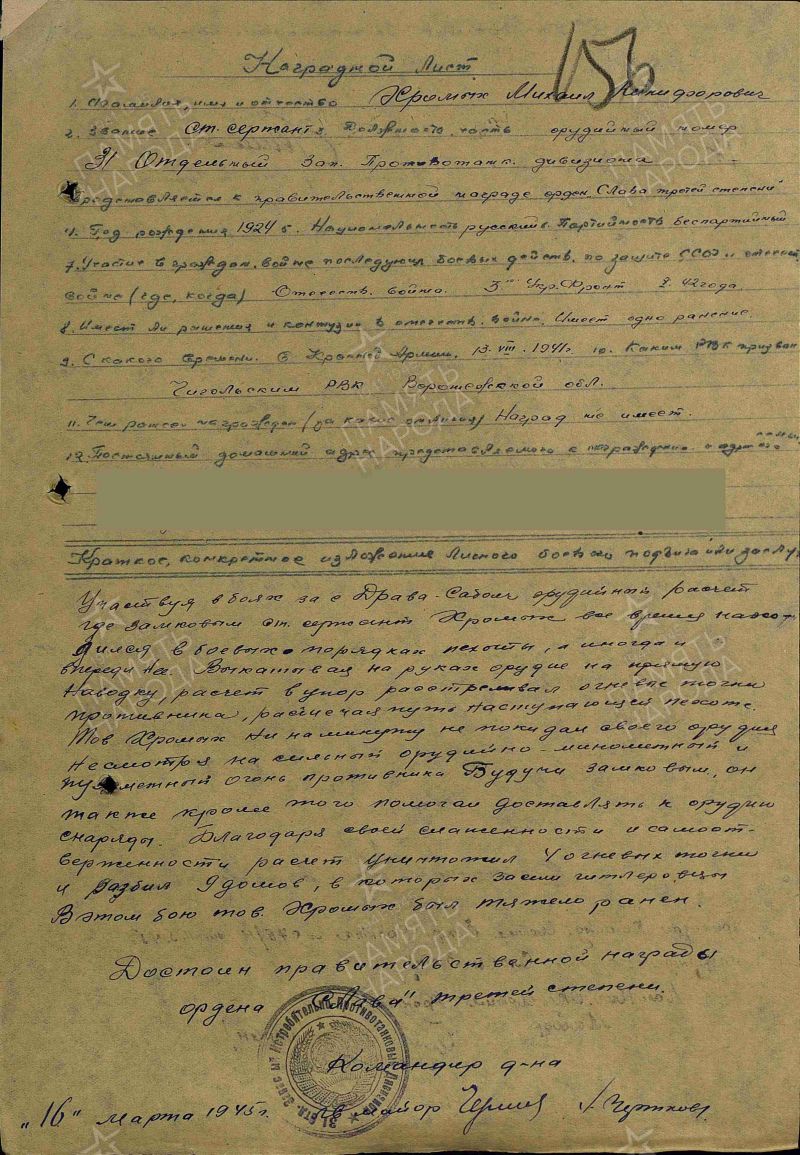 Наградной лист
156
1. Фамилия, имя и отчество Хромых Михаил Никифорович
2. Звание ст. сержант 3. Должность, часть орудийный номер
31 Отдельный Зап. Противотанк. дивизиона
Представляется к правительственной награде орден „Слава третей степени"
4. Год рождения 1924 5. Национальность русский 6. Партийность беспартийный
7. Участие в граждан. войне последующих боевых действ. по защите СССР и отечест.
войне (где, когда) Отечеств. война. 3й Укр. Фронт 42 года.
8. Имеет ли ранения и контузии в отечеств. войне. Имеет одно ранение.
9. С какого времени. в Красной Армии. 13.VIII.1941г. 10. Каким РВК призван
Чигольским РВК Воронежской обл.
11. Чем ранее награжден (за какие отличия) Наград не имеет.
12. Постоянный домашний адрес представляемого к награждению и адрес его
Краткое, конкретное изложение личного боевого подвига или заслуг
Участвуя в боях за с Драва-Саболч орудийный расчет
где замковым ст. сержант Хромых все время нахо-
дился в боевых порядках пехоты, а иногда и
впереди её. Выкатывая на руках орудие на прямую
наводку, расчет в упор расстреливал огневые точки
противника, расчищая путь наступающей пехоте.
Тов Хромых ни на минуту не покидал своего орудия
несмотря на сильный орудийно-минометный и
пулеметный огонь противника Будучи замковым, он
также кроме того помогал доставлять к орудию
снаряды. Благодаря своей слаженности и самоот-
верженности расчет уничтожил 4 огневых точки
и разбил 9 домов, в которых засели гитлеровцы
В этом бою тов. Хромых был тяжело ранен.
Достоин правительственной награды
ордена „Слава" третей степени.
Командир д-на
„16" марта 1945г. Гв майор
ПАМЯТЬ НАРОДА